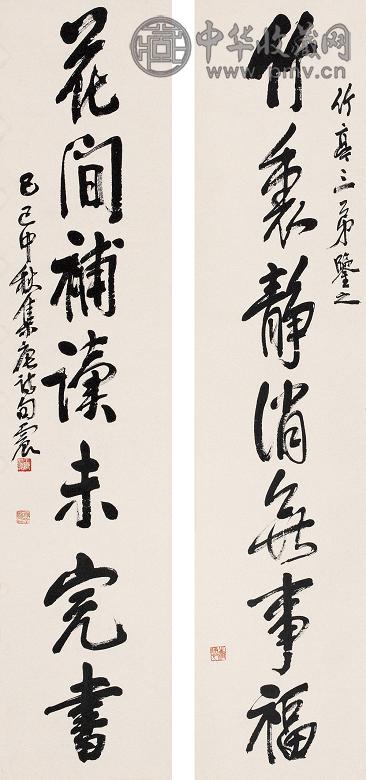 中华收藏网
www.pmv.cn
竹亭三弟鑒之
竹裏靜消無事福
花間補讀未完書
己巳中秋集唐詩句震